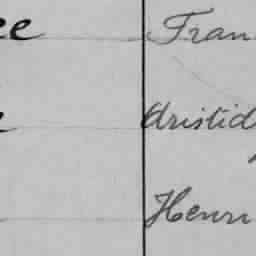 ee Fran
Aristid
Henri